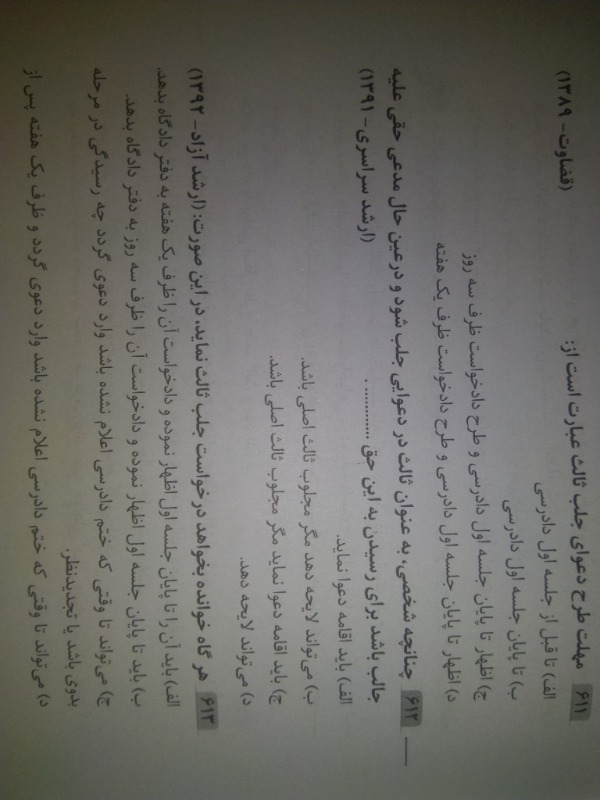 ۶۱۱ مهلت طرح دعوای جلب ثالث عبارت است از: (قضاوت - ۱۳۸۹)
الف) تا قبل از جلسه اول دادرسی
ب) تا پایان جلسه اول دادرسی
ج) اظهار تا پایان جلسه اول دادرسی و طرح دادخواست ظرف سه روز
د) اظهار تا پایان جلسه اول دادرسی و طرح دادخواست ظرف یک هفته
۶۱۲ چنانچه شخصی، به عنوان ثالث در دعوایی جلب شود و درعین حال مدعی حقی علیه
جالب باشد برای رسیدن به این حق ............ . (ارشد سراسری - ۱۳۹۱)
الف) باید اقامه دعوا نماید.
ب) می‌تواند لایحه دهد مگر مجلوب ثالث اصلی باشد.
ج) باید اقامه دعوا نماید مگر مجلوب ثالث اصلی باشد.
د) می‌تواند لایحه دهد.
۶۱۳ هر گاه خوانده بخواهد درخواست جلب ثالث نماید، در این صورت: (ارشد آزاد - ۱۳۹۲)
الف) باید آن را تا پایان جلسه اول اظهار نموده و دادخواست آن را ظرف یک هفته به دفتر دادگاه بدهد.
ب) باید تا پایان جلسه اول اظهار نموده و دادخواست آن را ظرف سه روز به دفتر دادگاه بدهد.
ج) می‌تواند تا وقتی که ختم دادرسی اعلام نشده باشد وارد دعوی گردد چه رسیدگی در مرحله
بدوی باشد یا تجدیدنظر.
د) می‌تواند تا وقتی که ختم دادرسی اعلام نشده باشد وارد دعوی گردد و ظرف یک هفته پس از